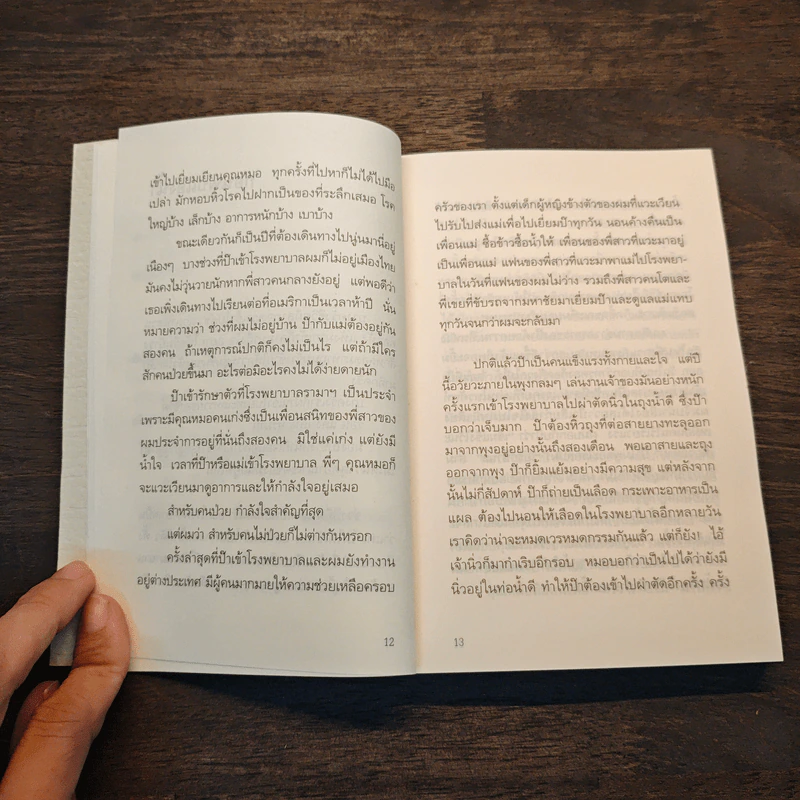 เข้าไปเยี่ยมเยียนคุณหมอ ทุกครั้งที่ไปหาก็ไม่ได้ไปมือ
เปล่า มักหอบหิ้วโรคไปฝากเป็นของที่ระลึกเสมอ โรค
ใหญ่บ้าง เล็กบ้าง อาการหนักบ้าง เบาบ้าง
ขณะเดียวกันก็เป็นปีที่ต้องเดินทางไปนู่นมานี่อยู่
เนืองๆ บางช่วงที่ป๊าเข้าโรงพยาบาลผมก็ไม่อยู่เมืองไทย
มันคงไม่วุ่นวายนักหากพี่สาวคนกลางยังอยู่ แต่พอดีว่า
เธอเพิ่งเดินทางไปเรียนต่อที่อเมริกาเป็นเวลาห้าปี นั่น
หมายความว่า ช่วงที่ผมไม่อยู่บ้าน ป๊ากับแม่ต้องอยู่กัน
สองคน ถ้าเหตุการณ์ปกติก็คงไม่เป็นไร แต่ถ้ามีใคร
สักคนป่วยขึ้นมา อะไรต่อมิอะไรคงไม่ได้ง่ายดายนัก
ป๊าเข้ารักษาตัวที่โรงพยาบาลรามาฯ เป็นประจำ
เพราะมีคุณหมอคนเก่งซึ่งเป็นเพื่อนสนิทของพี่สาวของ
ผมประจำการอยู่ที่นั่นถึงสองคน มิใช่แค่เก่ง แต่ยังมี
น้ำใจ เวลาที่ป๊าหรือแม่เข้าโรงพยาบาล พี่ๆ คุณหมอก็
จะแวะเวียนมาดูอาการและให้กำลังใจอยู่เสมอ
สำหรับคนป่วย กำลังใจสำคัญที่สุด
แต่ผมว่า สำหรับคนไม่ป่วยก็ไม่ต่างกันหรอก
ครั้งล่าสุดที่ป๊าเข้าโรงพยาบาลและผมยังทำงาน
อยู่ต่างประเทศ มีผู้คนมากมายให้ความช่วยเหลือครอบ
12
ครัวของเรา ตั้งแต่เด็กผู้หญิงข้างตัวของผมที่แวะเวียน
ไปรับไปส่งแม่เพื่อไปเยี่ยมป๊าทุกวัน นอนค้างคืนเป็น
เพื่อนแม่ ซื้อข้าวซื้อน้ำให้ เพื่อนของพี่สาวที่แวะมาอยู่
เป็นเพื่อนแม่ แฟนของพี่สาวที่แวะมาพาแม่ไปโรงพยา-
บาลในวันที่แฟนของผมไม่ว่าง รวมถึงพี่สาวคนโตและ
พี่เขยที่ขับรถจากมหาชัยมาเยี่ยมป๊าและดูแลแม่แทบ
ทุกวันจนกว่าผมจะกลับมา
ปกติแล้วป๊าเป็นคนแข็งแรงทั้งกายและใจ แต่ปี
นี้อวัยวะภายในพุงกลมๆ เล่นงานเจ้าของมันอย่างหนัก
ครั้งแรกเข้าโรงพยาบาลไปผ่าตัดนิ่วในถุงน้ำดี ซึ่งป๊า
บอกว่าเจ็บมาก ป๊าต้องหิ้วถุงที่ต่อสายยางทะลุออก
มาจากพุงอยู่อย่างนั้นถึงสองเดือน พอเอาสายและถุง
ออกจากพุง ป๊าก็ยิ้มแย้มอย่างมีความสุข แต่หลังจาก
นั้นไม่กี่สัปดาห์ ป๊าก็ถ่ายเป็นเลือด กระเพาะอาหารเป็น
แผล ต้องไปนอนให้เลือดในโรงพยาบาลอีกหลายวัน
เราคิดว่าน่าจะหมดเวรหมดกรรมกันแล้ว แต่ก็ยัง! ไอ้
เจ้านิ่วก็มากำเริบอีกรอบ หมอบอกว่าเป็นไปได้ว่ายังมี
นิ่วอยู่ในท่อน้ำดี ทำให้ป๊าต้องเข้าไปผ่าตัดอีกครั้ง ครั้ง
13